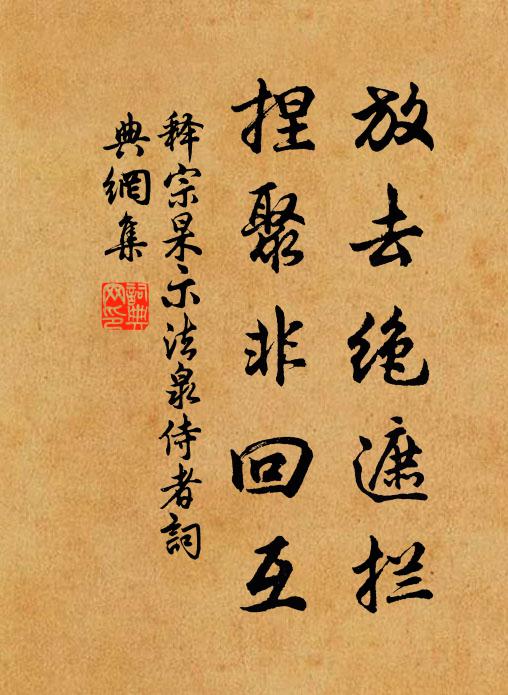 放去绝遮拦
捏聚非回互
释宗杲示法泉侍者詞
典網集
詞典
网印